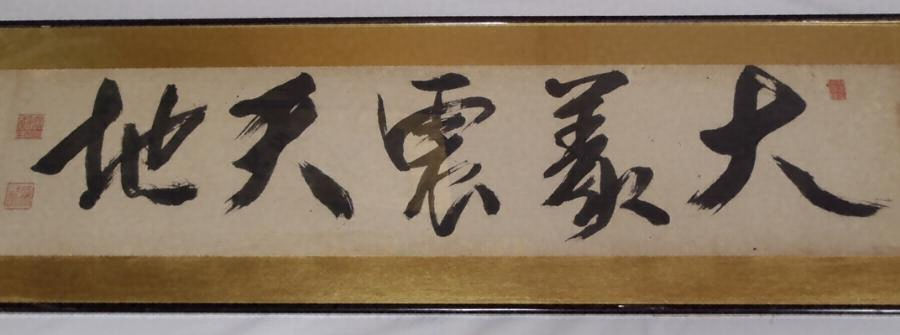 大義震天地